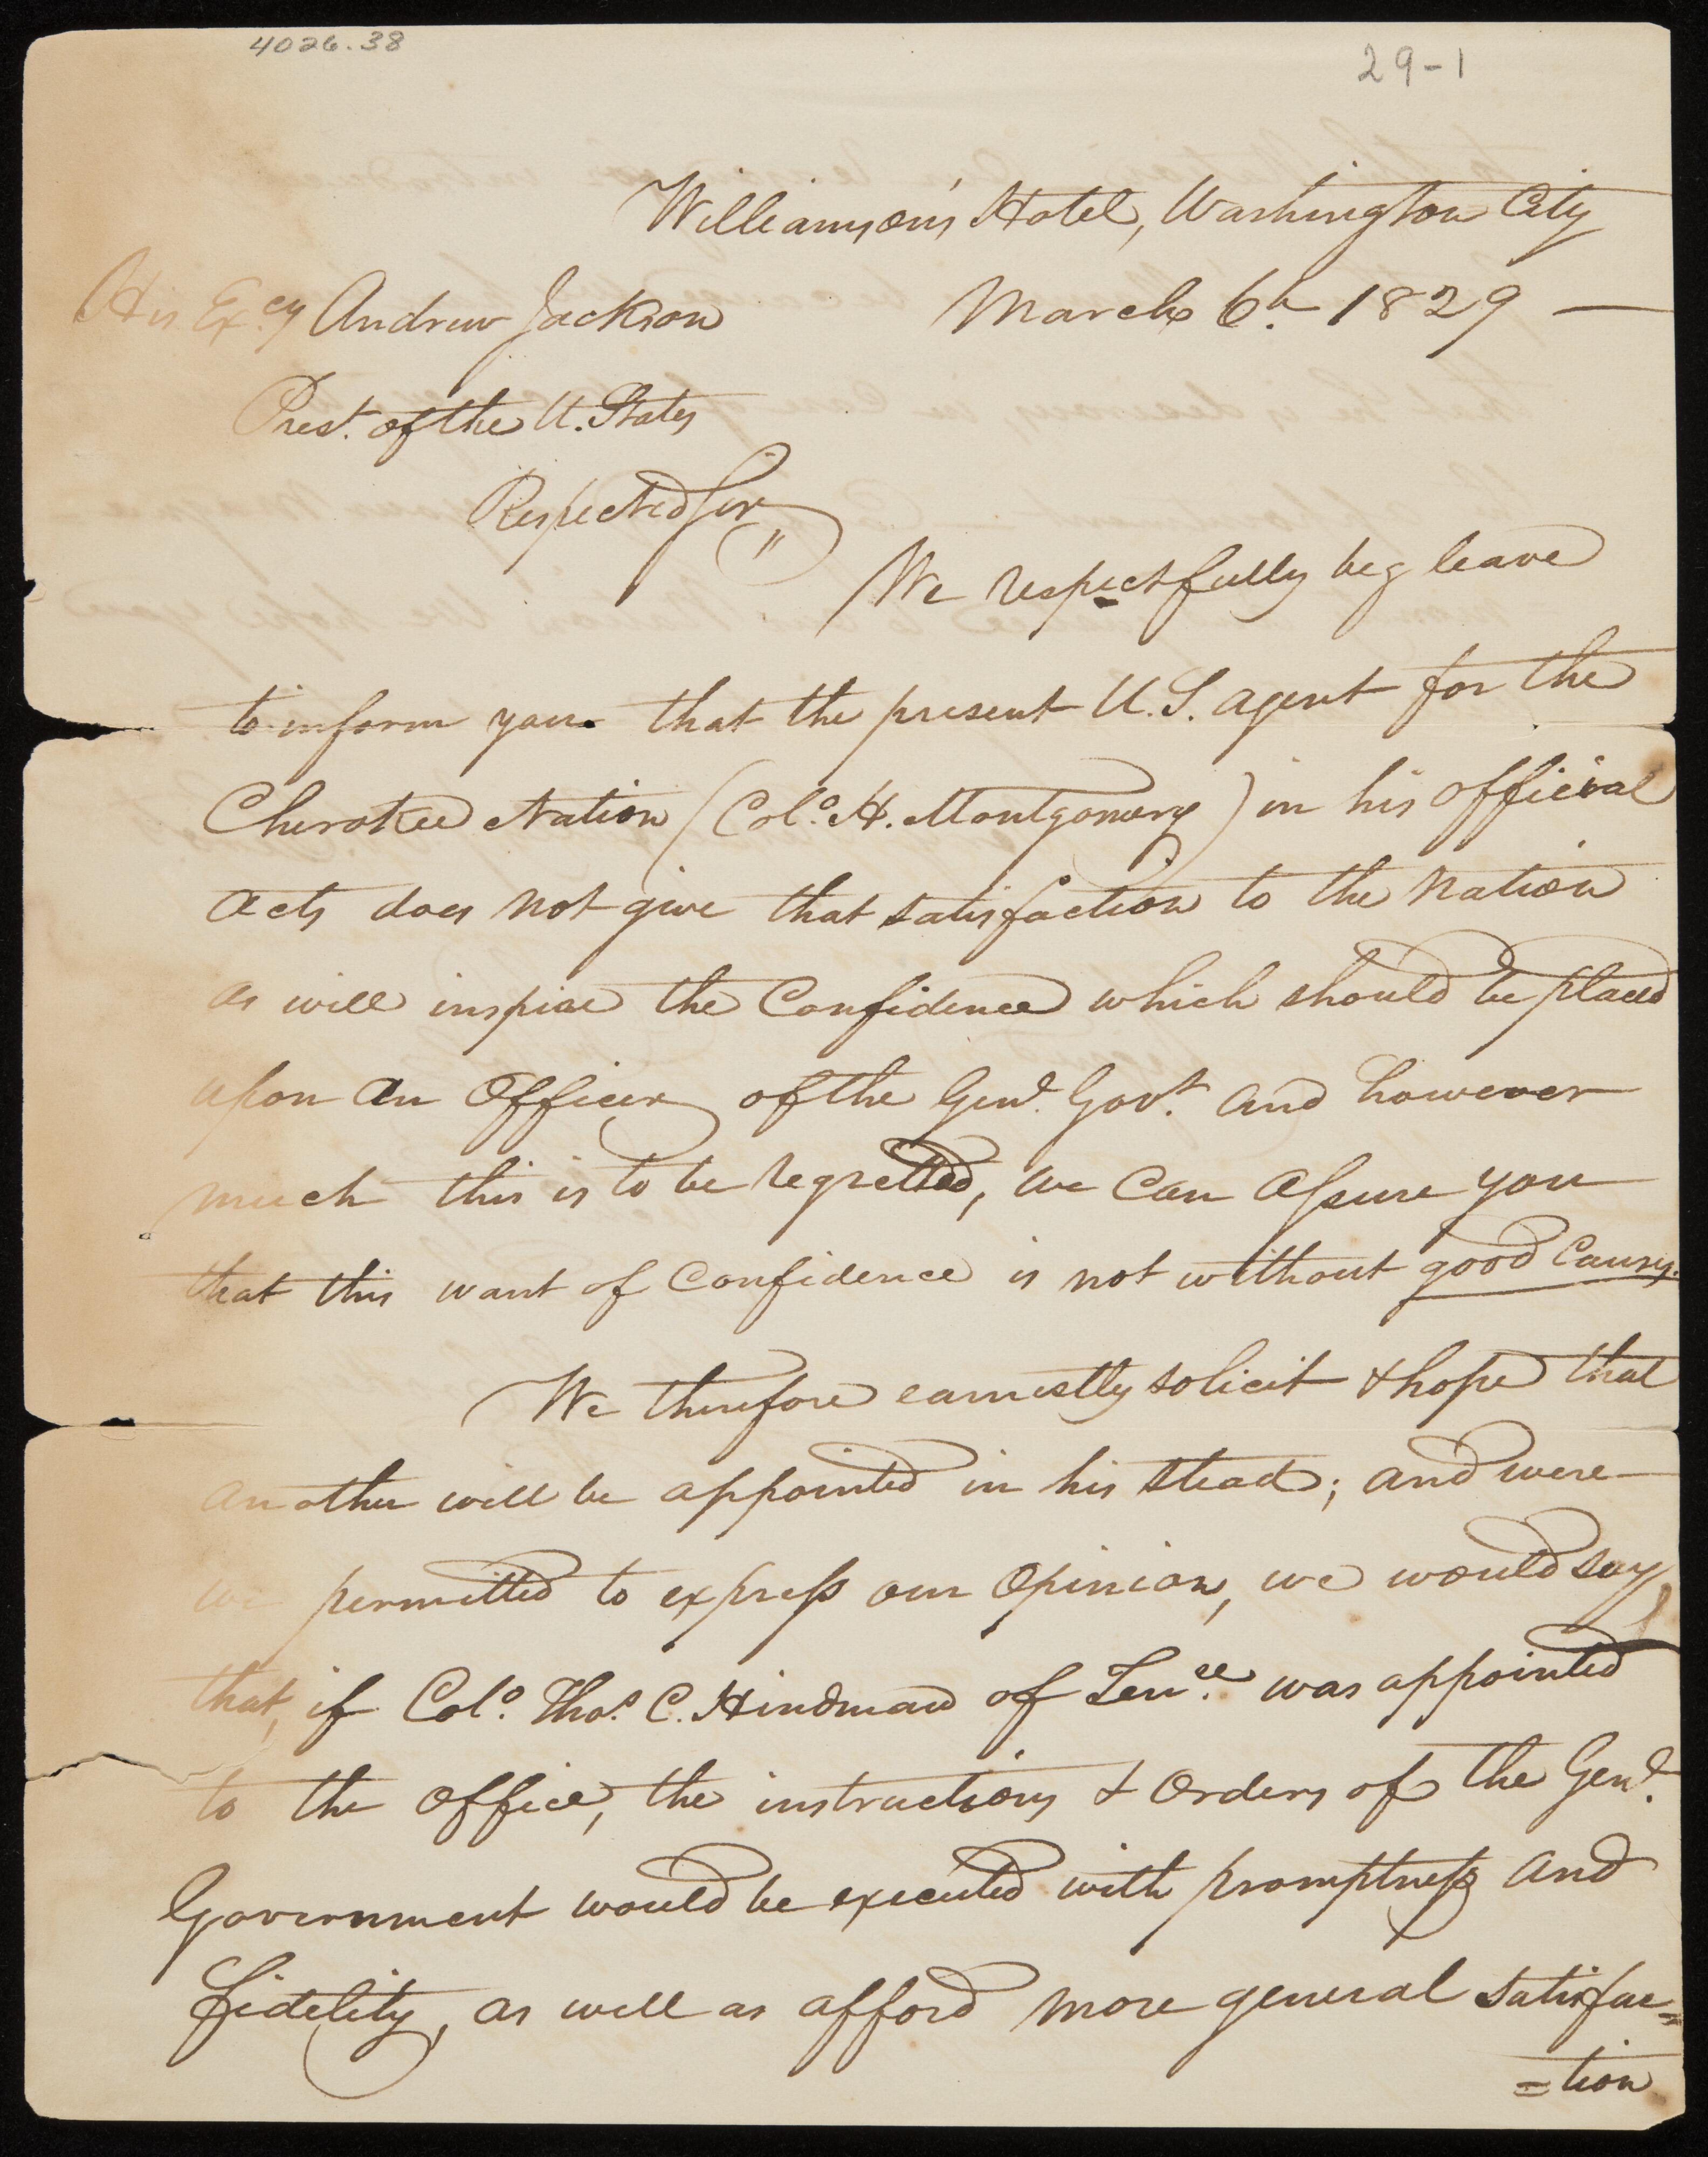 4026.38
29-1
Williamson's Hotel, Washington City
His Excy Andrew Jackson March 6h 1829 —
Prest. of the U. States
Respected Sir "
We respectfully beg leave
to inform you. that the present U.S. agent for the
Cherokee Nation (Colo. H. Montgomery) in his official
acts does not give that satisfaction to the Nation
as will inspire the Confidence which should be placed
upon an Officer of the Genl. Govt. and however
much this is to be regretted, we can assure you
that this want of Confidence is not without good Causes.
We therefore earnestly solicit & hope that
another will be appointed in his stead; and were
we permitted to express our Opinion, we would say
that, if Colo. Thos. C. Hindman of Tenee. was appointed
to the office, the instructions & Orders of the Genl.
Government would be executed with promptness and
fidelity, as well as afford more general satisfac=
=tion